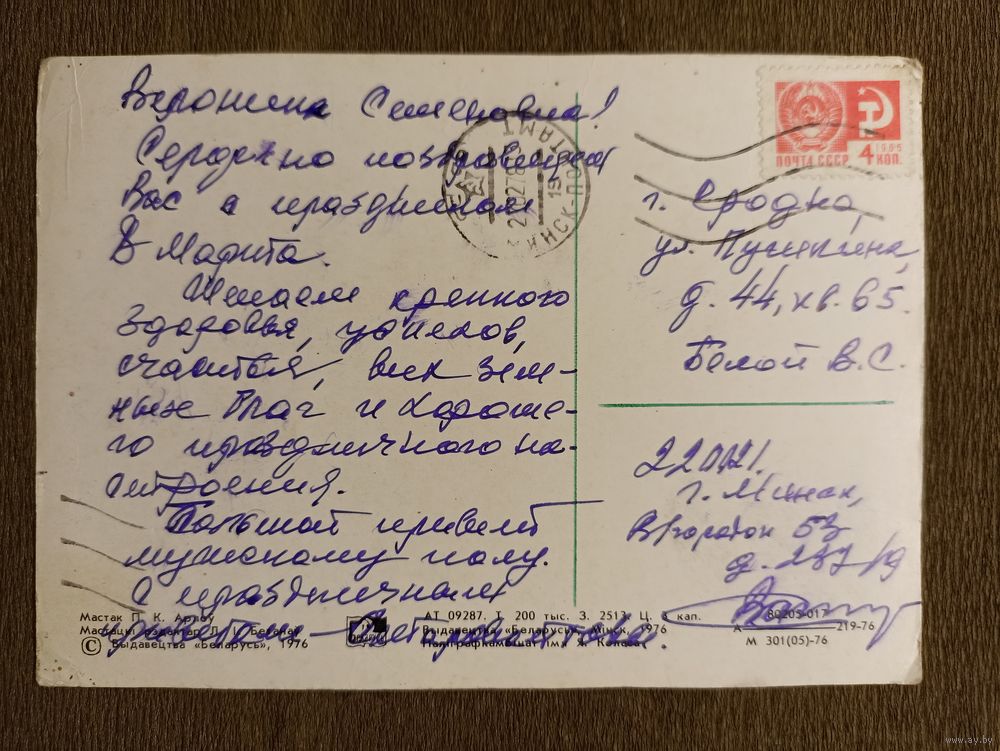 Вероника Семеновна!
Сердечно поздравляем
Вас с праздником
8 Марта.
Желаем крепкого
здоровья, успехов,
счастья, всех зем-
ных благ и хороше-
го праздничного на-
строения.
Большой привет
мужскому полу.
С праздничным
приветом
ПОЧТА СССР
1966
4 КОП.
г. Гродно,
ул. Пушкина,
д. 44, кв. 65.
Белой В.С.
г. Минск,
д. 287
Мастак П. К.
Выдавецтва «Беларусь», 1976
АТ 09287. Т. 200 тыс. З. 2513. Ц. 3 кап.
Выдавецтва «Беларусь», Мінск, 1976
Паліграфкамбінат імя Я. Коласа
80205-017
219-76
М 301(05)-76
www.ay.by